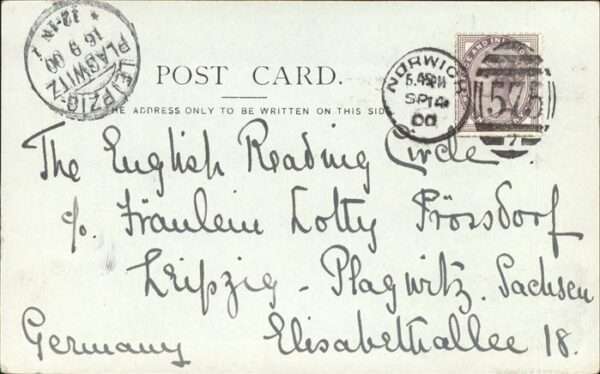 LEIPZIG-PLAGWITZ
* 12-1N 1
16 9 00
POST CARD.
THE ADDRESS ONLY TO BE WRITTEN ON THIS SIDE
NORWICH
SP 14
00
575
The English Reading Circle
c/o. Fräulein Lotty Prössdorf
Leipzig - Plagwitz. Sachsen
Germany Elisabethallee 18.